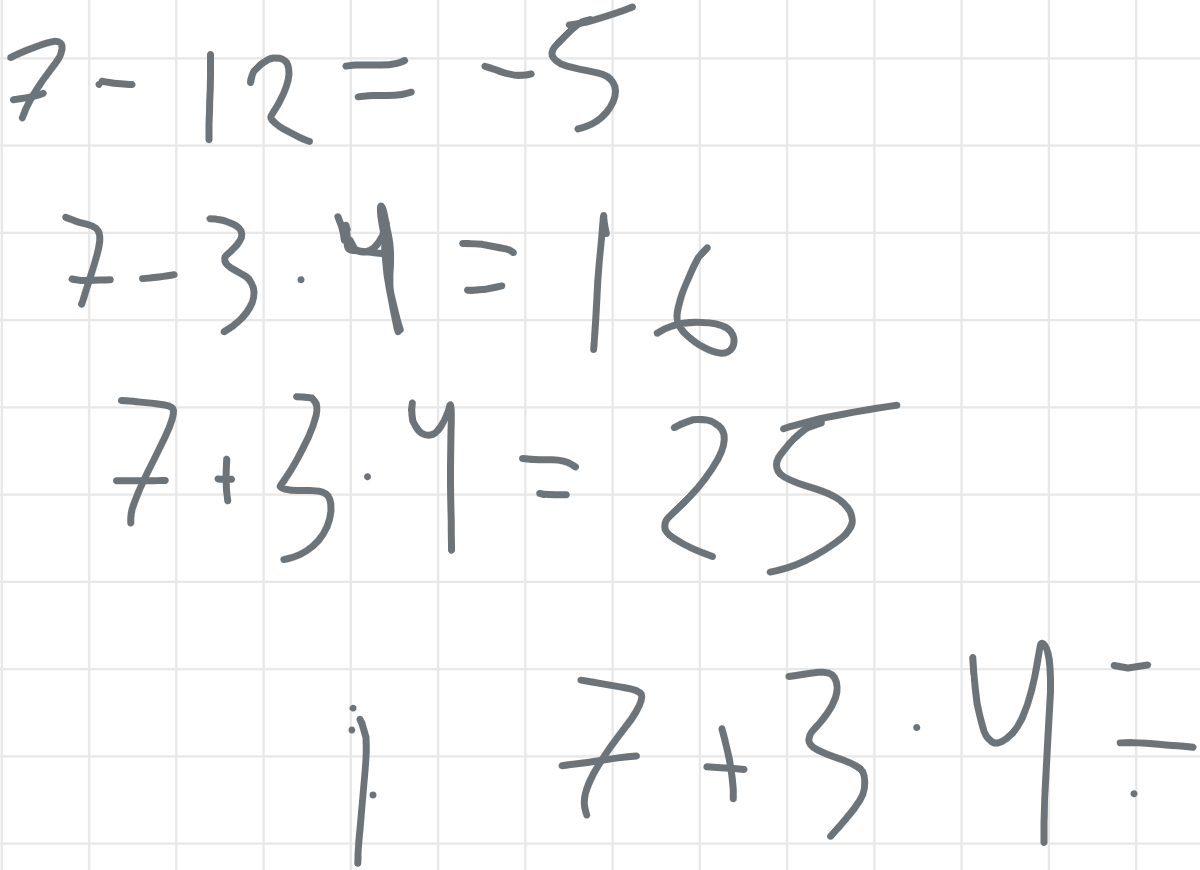 7 - 12 = -5
7 - 3 · 4 = 16
7 + 3 · 4 = 25
7 + 3 · 4 =